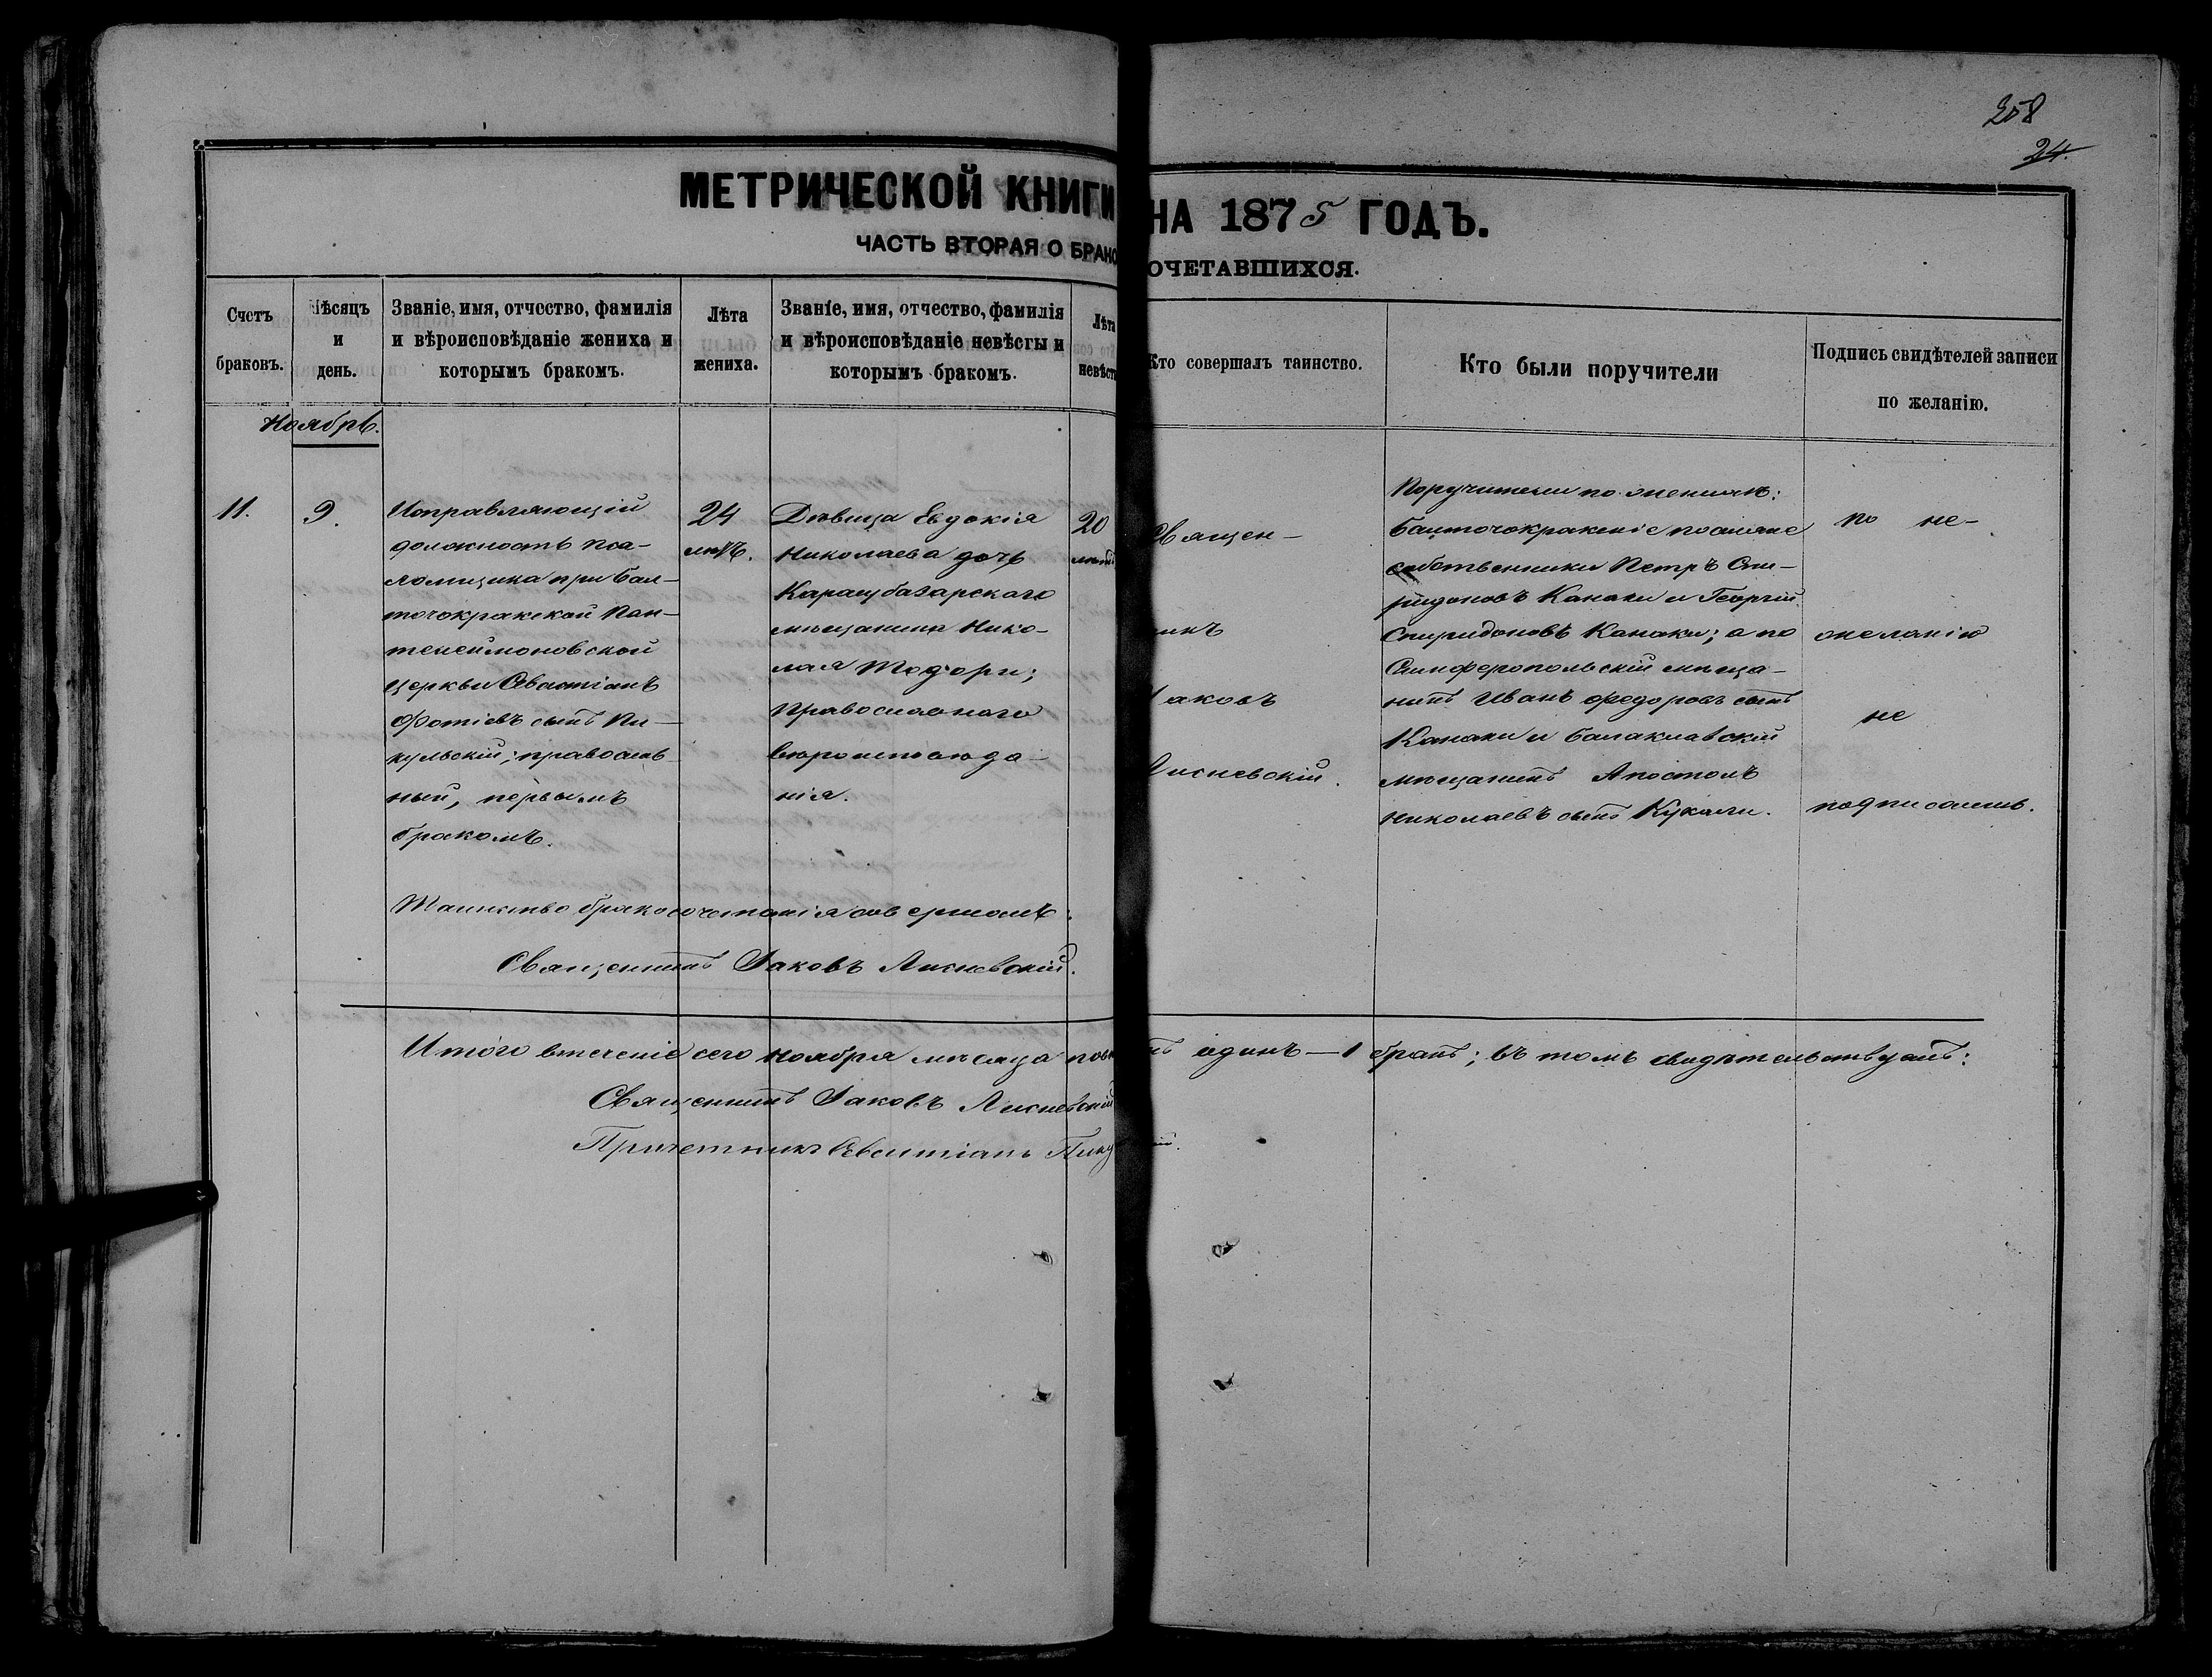 258
24.
МЕТРИЧЕСКОЙ КНИГИ НА 1875 ГОДЪ.
ЧАСТЬ ВТОРАЯ О БРАКОСОЧЕТАВШИХСЯ.
Счетъ
браковъ.
Мѣсяцъ
и
день.
Званіе, имя, отчество, фамилія
и вѣроисповѣданіе жениха и
которымъ бракомъ.
Лѣта
жениха.
Званіе, имя, отчество, фамилія
и вѣроисповѣданіе невѣсты и
которымъ бракомъ.
Лѣта
невѣсты
Кто совершалъ таинство.
Кто были поручители
Подпись свидѣтелей записи
по желанію.
Ноябрь.
11.
9.
Исправляющій
должность пса-
ломщика при Бал-
точокракской Пан-
телеймоновской
церкви Севастіанъ
Фотіевъ сынъ Пи-
кульскій; православ-
ный, первымъ
бракомъ.
24
лѣтъ.
Дѣвица Евдокія
Николаева дочь
Карасубазарскаго
мѣщанина Нико-
лая Тодори;
православнаго
вѣроисповѣда-
нія.
20
лѣтъ
Священ-
никъ
Іаковъ
Лисневскій.
Поручители по женихѣ:
Балточокракскіе поселяне
собственники Петръ Спи-
ридоновъ Канаки и Георгій
Спиридоновъ Канаки; а по
Симферопольскій мѣща-
нинъ Иванъ Федоровъ сынъ
Канаки и Балаклавскій
мѣщанинъ Апостолъ
Николаевъ сынъ Кукали.
По не-
желанію
не
подписались.
Таинство бракосочетанія совершалъ:
Священникъ Іаковъ Лисневскій.
Итого втеченіе сего ноября мѣсяца одинъ — 1 бракъ; въ томъ свидѣтельствуютъ:
Священникъ Іаковъ Лисневскій
Причетникъ Севастіанъ Пику